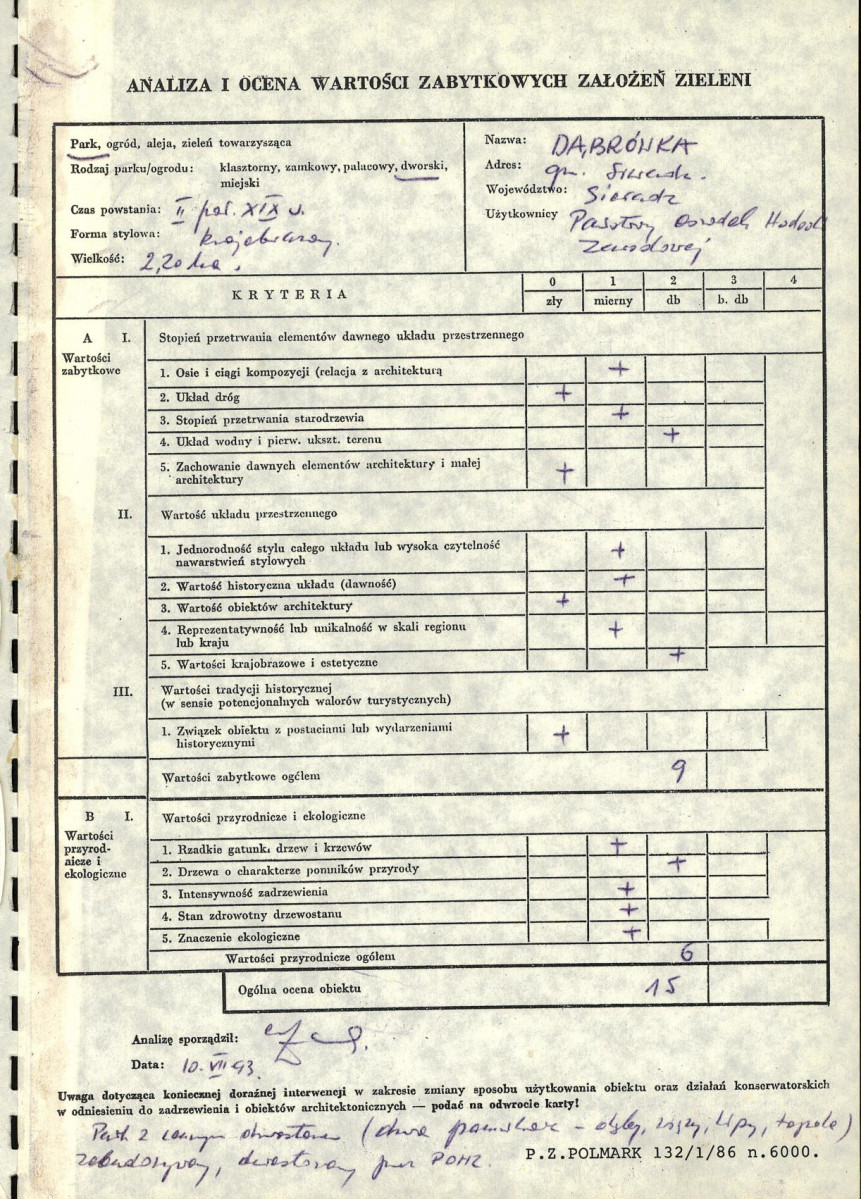 ANALIZA I OCENA WARTOŚCI ZABYTKOWYCH ZAŁOŻEŃ ZIELENI
Park, ogród, aleja, zieleń towarzysząca
Rodzaj parku/ogrodu: klasztorny, zamkowy, pałacowy, dworski,
miejski
Czas powstania: II poł. XIX w.
Forma stylowa: krajobrazowy.
Wielkość: 2,20 ha.
Nazwa: DĄBRÓWKA
Adres: gm. Sieradz.
Województwo: Sieradz
Użytkownicy Państwowy Ośrodek Hodowli
Zarodowej
KRYTERIA
0 1 2 3 4
zły mierny db b. db
A I. Stopień przetrwania elementów dawnego układu przestrzennego
Wartości
zabytkowe
1. Osie i ciągi kompozycji (relacja z architekturą +
2. Układ dróg +
3. Stopień przetrwania starodrzewia +
4. Układ wodny i pierw. ukszt. terenu +
5. Zachowanie dawnych elementów architektury i małej
architektury +
II. Wartość układu przestrzennego
1. Jednorodność stylu całego układu lub wysoka czytelność
nawarstwień stylowych +
2. Wartość historyczna układu (dawność) +
3. Wartość obiektów architektury +
4. Reprezentatywność lub unikalność w skali regionu
lub kraju +
5. Wartości krajobrazowe i estetyczne +
III. Wartości tradycji historycznej
(w sensie potencjonalnych walorów turystycznych)
1. Związek obiektu z postaciami lub wydarzeniami
historycznymi +
Wartości zabytkowe ogółem 9
B I. Wartości przyrodnicze i ekologiczne
Wartości
przyrod-
nicze i
ekologiczne
1. Rzadkie gatunki drzew i krzewów +
2. Drzewa o charakterze pomników przyrody +
3. Intensywność zadrzewienia +
4. Stan zdrowotny drzewostanu +
5. Znaczenie ekologiczne +
Wartości przyrodnicze ogółem 6
Ogólna ocena obiektu 15
Analizę sporządził:
Data: 10.VII 93
Uwaga dotycząca koniecznej doraźnej interwencji w zakresie zmiany sposobu użytkowania obiektu oraz działań konserwatorskich
w odniesieniu do zadrzewienia i obiektów architektonicznych — podać na odwrocie karty!
Park z cennym (dwa - dęby, wiązy, lipy, topole)
dewastowany przez POHZ.
P.Z.POLMARK 132/1/86 n.6000.